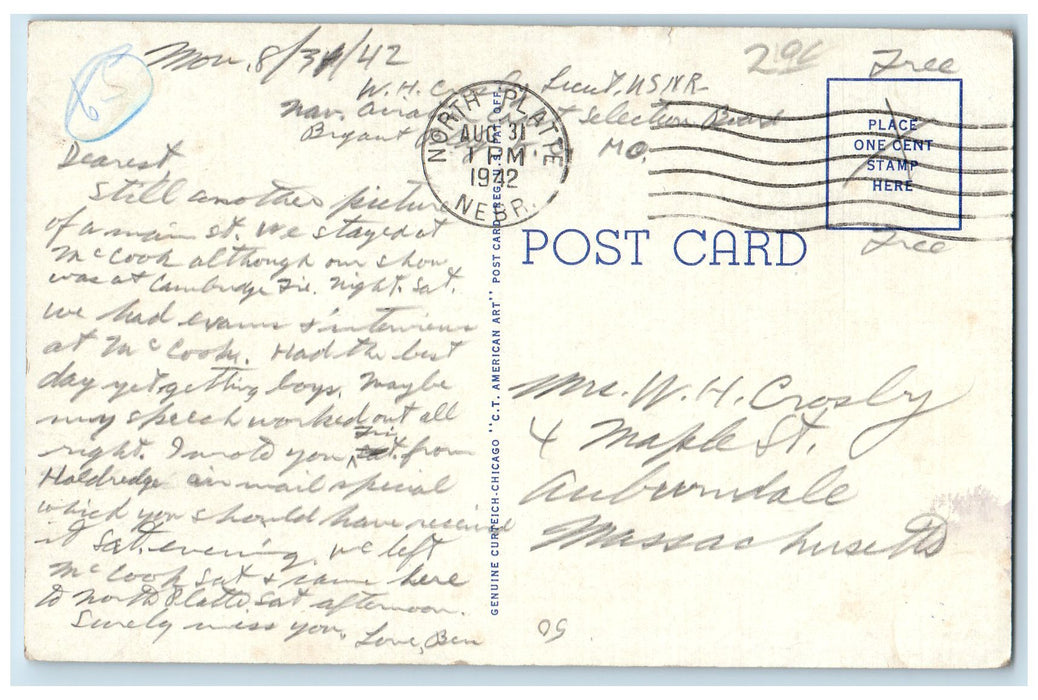 65
Mon. 8/31/42
2.00
Free
W.H. Crosby Lieut. USNR
Nav. Aviation Cadet Selection Board
Bryant MO.
NORTH PLATTE
AUG 31
1 PM
1942
NEBR.
PLACE
ONE CENT
STAMP
HERE
Free
POST CARD
GENUINE CURTEICH-CHICAGO "C.T. AMERICAN ART" POST CARD (REG. U.S. PAT. OFF.)
Dearest
Still another picture
of a main st. We stayed at
McCook although our show
was at Cambridge Fri. night. Sat.
we had exams & interviews
at McCook. Had the best
day yet getting boys. Maybe
my speech worked out all
right. I wrote you Fri. from
Holdredge air mail special
which you should have received
it Sat. evening. We left
McCook Sat & came here
to North Platte Sat afternoon.
Surely miss you.
Love, Ben
Mrs. W. H. Crosby
4 Maple St.
Auburndale
Massachusetts
05